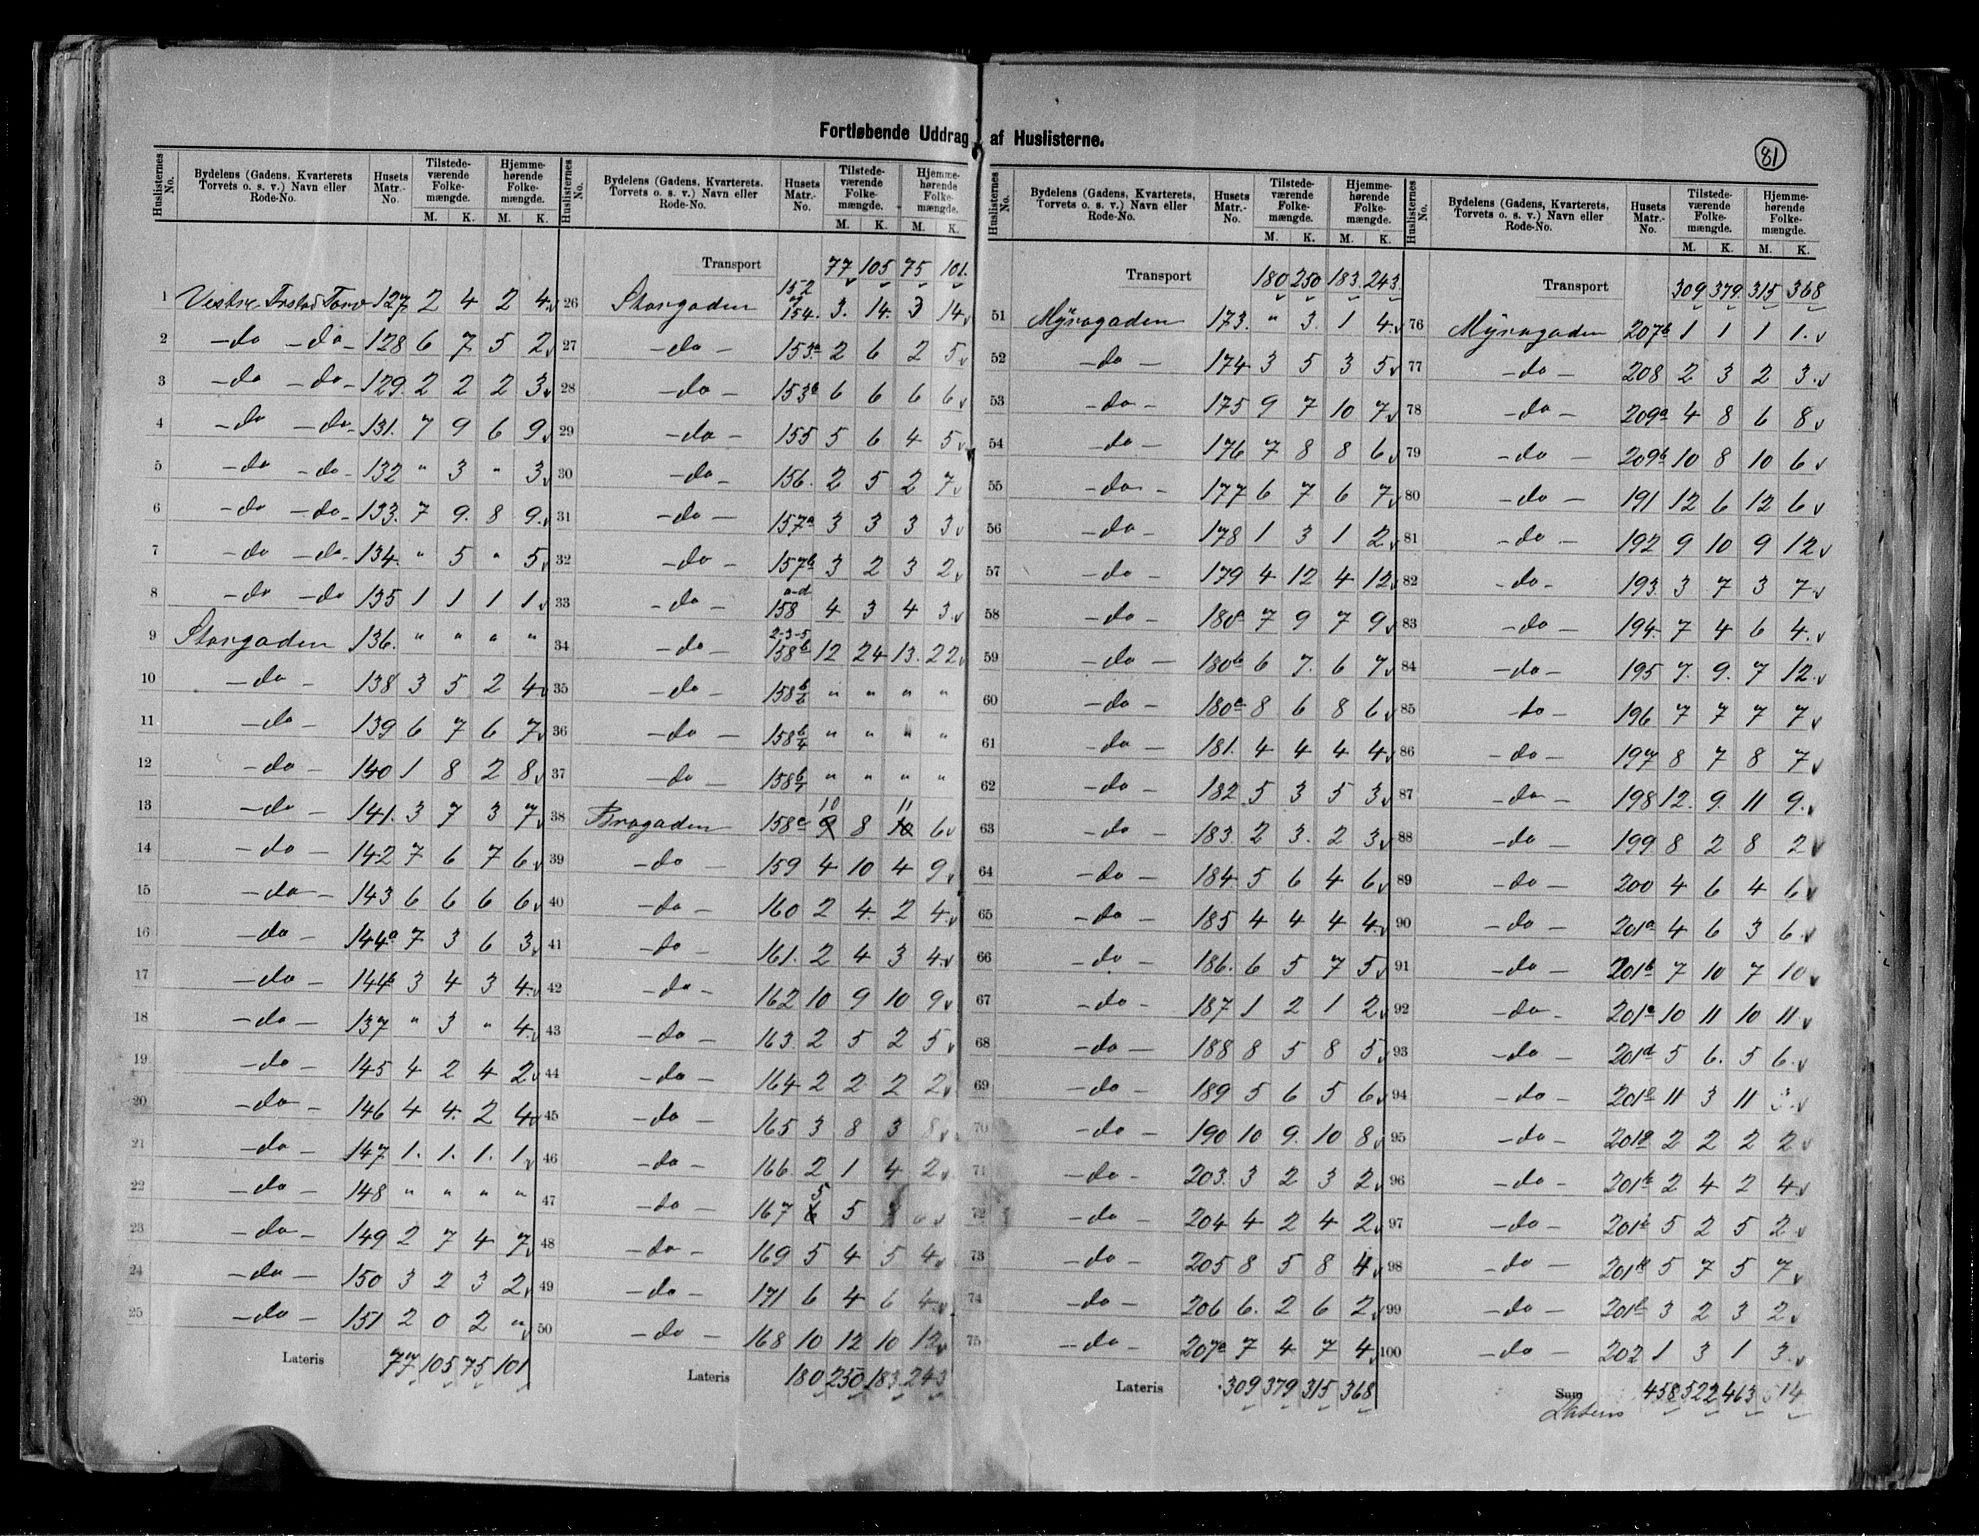 Fortløbende Uddrag af Huslisterne.
81
Huslisternes No. | Bydelens (Gadens, Kvarterets, Torvets o. s. v.) Navn eller Rode-No. | Husets Matr.-No. | Tilstedeværende Folkemængde. M. K. | Hjemmehørende Folkemængde. M. K.
1 Vestre Torv 127. 2 4 2 4
2 -do -do- 128 6 7 5 2
3 -do -do- 129. 2 2 2 3
4 -do -do- 131. 7 9 6 9
5 -do -do- 132 " 3 " 3
6 -do -do- 133. 7 9. 8 9
7 -do -do- 134. " 5 " 5
8 -do -do 135 1 1 1 1
9 Storgaden 136. " " " "
10 -do- 138 3 5 2 4
11 -do- 139 6 7 6 7
12 -do- 140 1 8 2 8
13 -do- 141. 3 7 3 7
14 -do- 142 7 6 7 6
15 -do- 143 6 6 6 6
16 -do- 144a 7 3 6 3
17 -do- 144b 3 4 3 4
18 -do- 137 " 3 " 4
19 -do- 145 4 2 4 2
20 -do- 146 4 4. 2 4
21 -do- 147 1. 1. 1. 1
22 -do- 148 " " " "
23 -do- 149 2 7 4 7
24 -do- 150 3 2 3 2
25 -do- 151 2 0 2 "
Lateris 77 105 75 101
Huslisternes No. | Bydelens (Gadens, Kvarterets, Torvets o. s. v.) Navn eller Rode-No. | Husets Matr.-No. | Tilstedeværende Folkemængde. M. K. | Hjemmehørende Folkemængde. M. K.
Transport 77 105 75 101.
26 Storgaden 152 154. 3. 14. 3 14
27 -do- 153a 2 6 2 5
28 -do- 153b 6 6 6 6
29 -do- 155 5 6 4 5
30 -do- 156. 2 5 2 7
31 -do- 157a 3 3 3 3
32 -do- 157b 3 2 3 2
33 -do- a-d 158 4 3 4 3
34 -do- 2-3-5 158b 12 24 13. 22
35 -do- 158 b/6 " " " "
36 -do- 158 b/4 " " " "
37 -do- 158 b/1 " " " "
38 Brogaden 158c 9 10 8 10 11 6
39 -do- 159 4 10 4 9
40 -do- 160 2 4. 2 4
41 -do- 161. 2 4 3 4
42 -do- 162 10 9 10 9
43 -do- 163. 2 5 2 5
44 -do- 164 2 2 2 2
45 -do- 165 3 8 3 8
46 -do- 166. 2 1 4 2
47 -do- 167 6 5 5
48 -do- 169 5 4 5 4
49 -do- 171 6 4 6 4
50 -do- 168 10 12 10 12
Lateris 180 250 183 243
Huslisternes No. | Bydelens (Gadens, Kvarterets, Torvets o. s. v.) Navn eller Rode-No. | Husets Matr.-No. | Tilstedeværende Folkemængde. M. K. | Hjemmehørende Folkemængde. M. K.
Transport 180 250 183. 243.
51 Myragaden 173. " 3. 1 4
52 -do- 174 3 5 3 5
53 -do- 175 9 7 10 7
54 -do- 176 7 8 8 6
55 -do- 177 6 7 6 7
56 -do- 178 1 3 1 2
57 -do- 179 4 12 4 12
58 -do- 180 7 9 7 9
59 -do- 180b 6 7. 6 7
60 -do- 180c 8 6 8 6
61 -do- 181. 4 4 4 4
62 -do- 182 5 3 5 3
63 -do- 183. 2 3. 2 3
64 -do- 184 5 6 4 6
65 -do- 185 4 4 4 4
66 -do- 186. 6 5 7 5
67 -do- 187 1 2 1 2
68 -do- 188 8 5 8 5
69 -do- 189 5 6 5 6
70 -do- 190 10 9. 10 8
71 -do- 203. 3 2 3 2
72 -do- 204 4 2 4 2
73 -do- 205 8 5 8 4
74 -do- 206 6. 2 6 2
75 -do- 207a 7 4 7 4
Lateris 309 379 315 368
Huslisternes No. | Bydelens (Gadens, Kvarterets, Torvets o. s. v.) Navn eller Rode-No. | Husets Matr.-No. | Tilstedeværende Folkemængde. M. K. | Hjemmehørende Folkemængde. M. K.
Transport 309 379. 315 368
76 Myragaden 207b 1 1 1 1.
77 -do- 208 2 3 2 3
78 -do- 209a 4 8 6 8
79 -do- 209b 10 8 10 6
80 -do- 191 12 6 12 6
81 -do- 192 9 10 9 12
82 -do- 193. 3 7 3 7
83 -do- 194 7 4 6 4
84 -do- 195 7. 9. 7 12
85 -do- 196 7 7 7 7
86 -do- 197 8 7 8 7
87 -do- 198 12. 9. 11 9
88 -do- 199. 8 2 8 2
89 -do- 200 4 6 4 6
90 -do- 201a 4 6 3 6
91 -do- 201b 7 10 7 10
92 -do- 201c 10 11 10 11
93 -do- 201d 5 6. 5 6
94 -do- 201e 11 3 11 3
95 -do- 201g 2 2 2 2
96 -do- 201h 2 4 2 4
97 -do- 201i 5 2 5 2
98 -do- 201k 5 7 5 7
99 -do- 201l 3 2 3 2
100 -do- 202 1 3 1 3
Sum Lateris 458 522 463 514